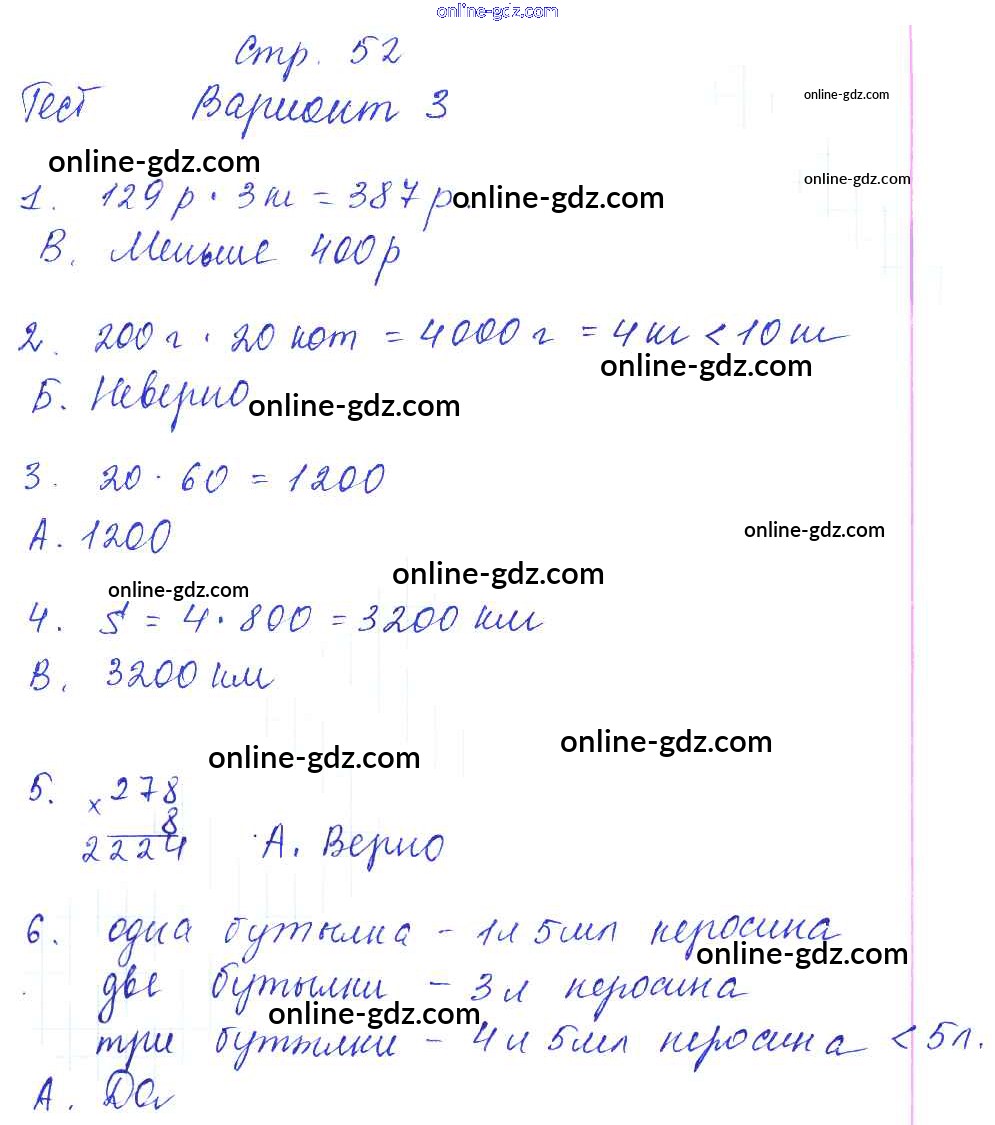 online-gdz.com
Стр. 52
Тест Вариант 3
online-gdz.com
online-gdz.com
1. 129 р · 3 ш = 387 р. online-gdz.com
online-gdz.com
В. Меньше 400р
2. 200 г · 20 кот = 4000 г = 4 кг < 10 кг
online-gdz.com
Б. Неверно online-gdz.com
3. 20 · 60 = 1200
А. 1200
online-gdz.com
online-gdz.com
online-gdz.com
4. S = 4 · 800 = 3200 км
В. 3200 км
online-gdz.com
online-gdz.com
5. × 278
8
2224 А. Верно
6. одна бутылка - 1л 5мл керосина
online-gdz.com
две бутылки - 3 л керосина
online-gdz.com
три бутылки - 4 л 5мл керосина < 5л.
А. Да